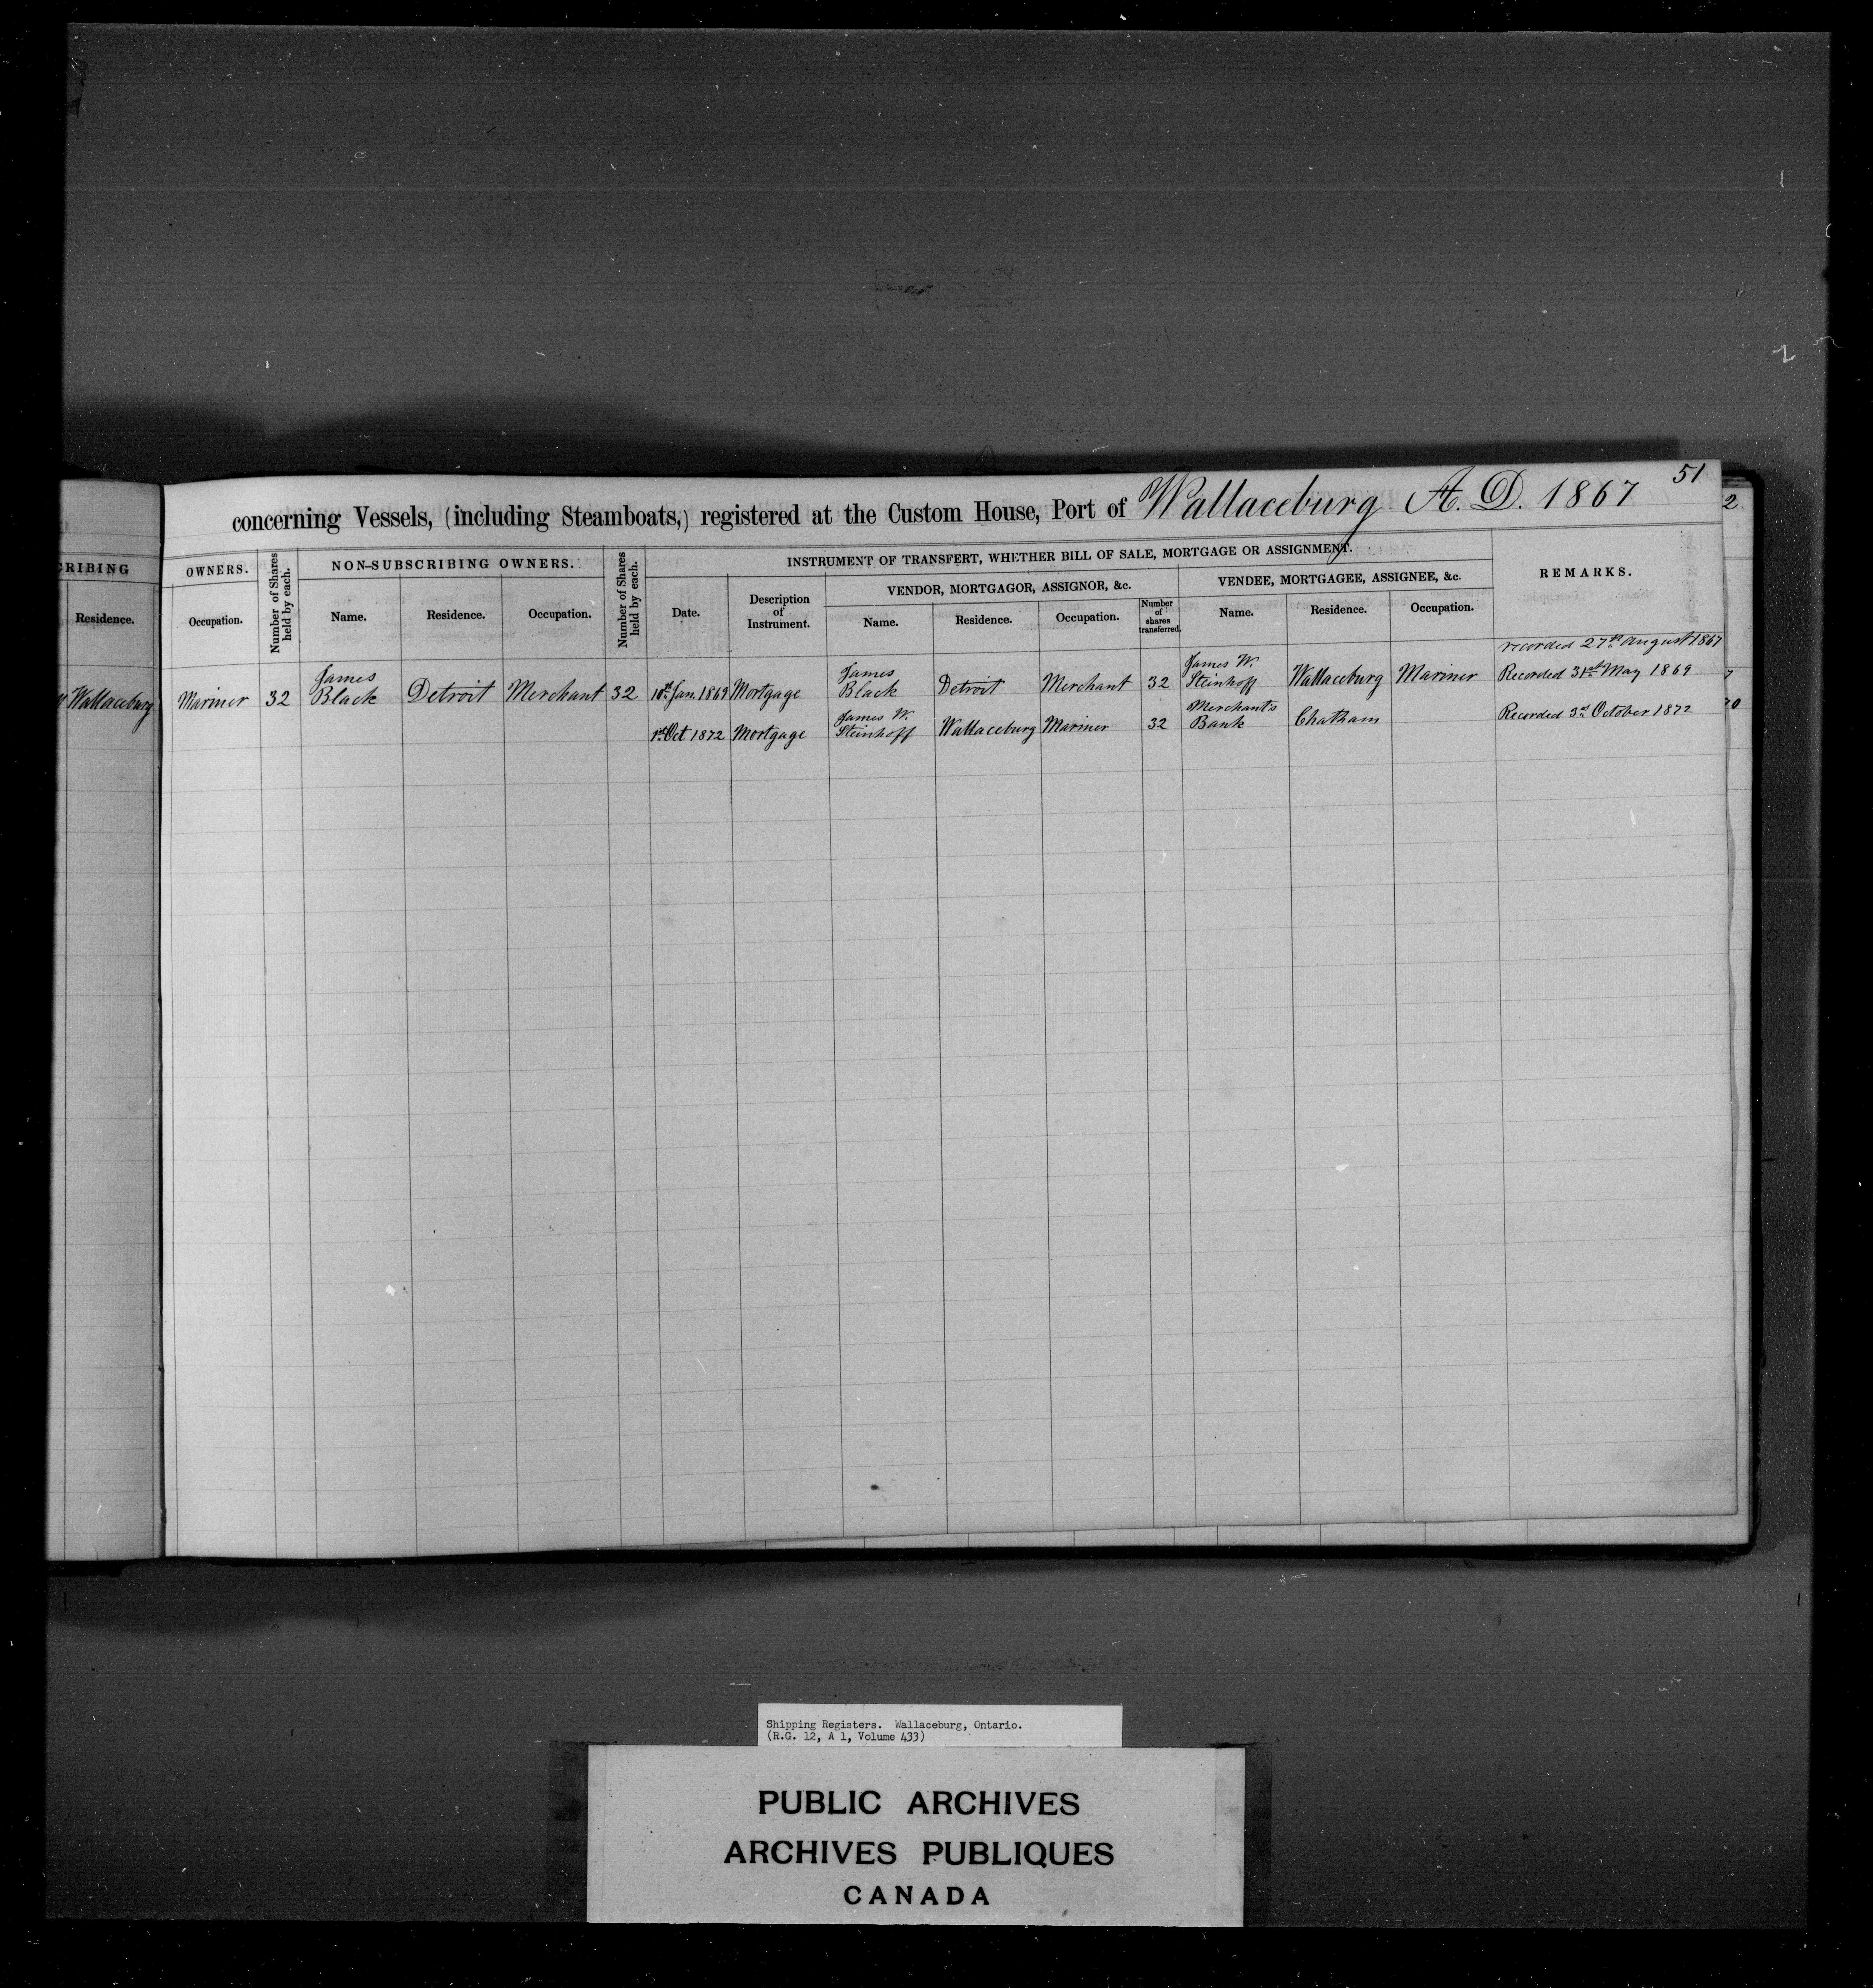 51
concerning Vessels, (including Steamboats,) registered at the Custom House, Port of Wallaceburg A. D. 1867
2
CRIBING
OWNERS.
Number of Shares held by each.
NON-SUBSCRIBING OWNERS.
Number of Shares held by each.
INSTRUMENT OF TRANSFERT, WHETHER BILL OF SALE, MORTGAGE OR ASSIGNMENT.
REMARKS.
VENDOR, MORTGAGOR, ASSIGNOR, &c.
VENDEE, MORTGAGEE, ASSIGNEE, &c.
Residence.
Occupation.
Name.
Residence.
Occupation.
Date.
Description of Instrument.
Name.
Residence.
Occupation.
Number of shares transferred.
Name.
Residence.
Occupation.
recorded 27th August 1867
Wallaceburg Mariner 32 James Black Detroit Merchant 32 10th Jan. 1869 Mortgage James Black Detroit Merchant 32 James W. Steinhoff Wallaceburg Mariner Recorded 31st May 1869
7
1st Oct 1872 Mortgage James W. Steinhoff Wallaceburg Mariner 32 Merchants Bank Chatham Recorded 3rd October 1872
70
Shipping Registers. Wallaceburg, Ontario.
(R.G. 12, A 1, Volume 433)
PUBLIC ARCHIVES
ARCHIVES PUBLIQUES
CANADA